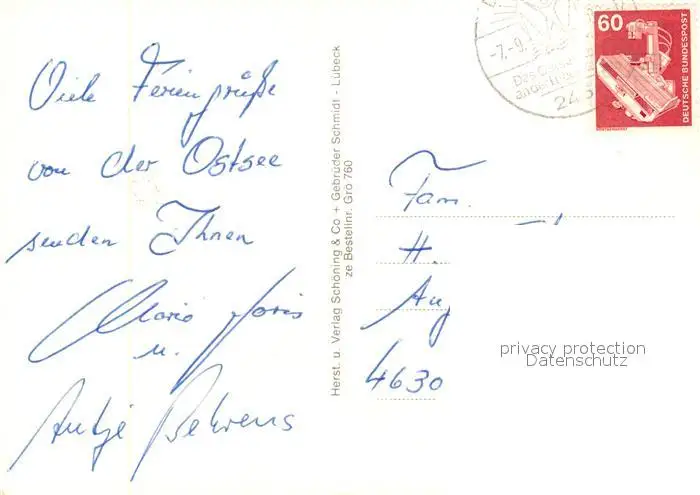 Viele Feriengrüße
von der Ostsee
senden Ihnen
Mario Joris
u.
Antje Behrens
Herst. u. Verlag Schöning & Co + Gebrüder Schmidt - Lübeck
ze Bestellnr. Grö 760
-7.-9.
243
60
DEUTSCHE BUNDESPOST
Fam.
H.
Au
4630
privacy protection
Datenschutz